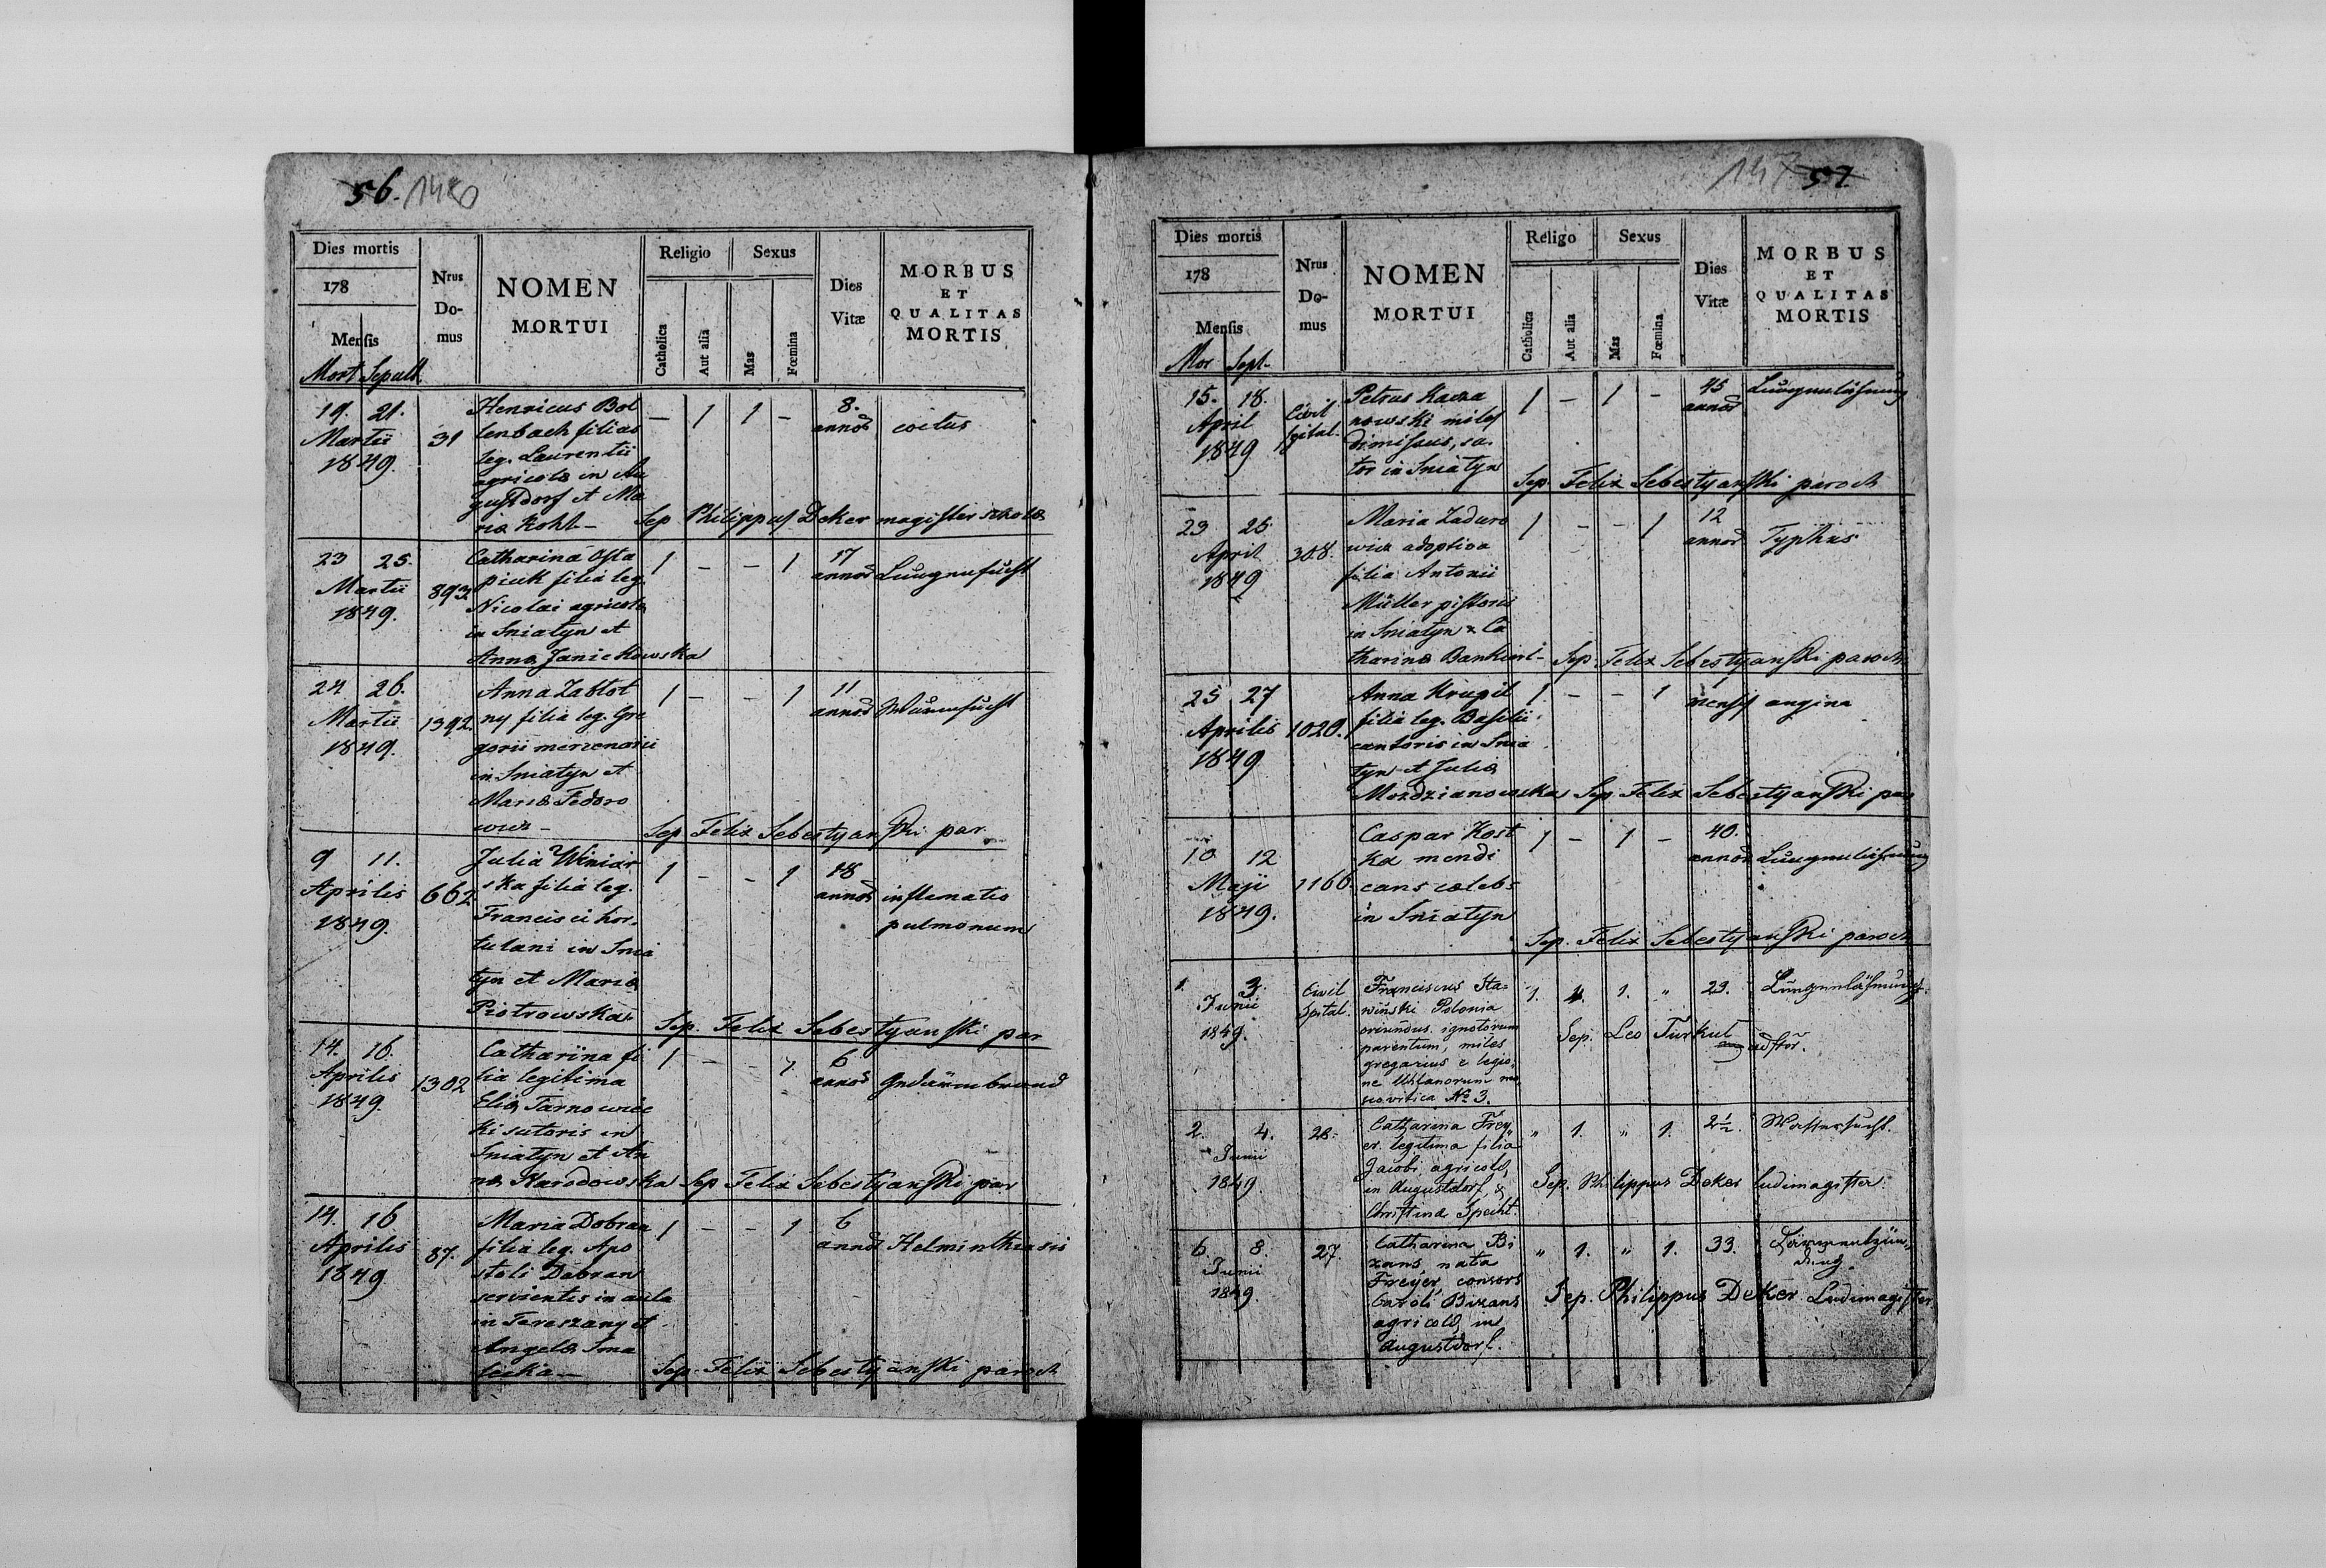 56. 1480
Dies mortis
178
Mensis
Mort Sepult
Nrus
Do-
mus
NOMEN
MORTUI
Religio
Catholica
Aut alia
Sexus
Mas
Fœmina
Dies
Vitæ
MORBUS
ET
QUALITAS
MORTIS
19. 21.
Martii
1849.
31
Henricus Bol
lenbach filius
leg. Laurentii
agricolæ in Au
gustdorf et Ma
riæ Kohl –
– 1 1 –
8.
annor
coitus
Sep Philippus Deker magister scholæ
23 25.
Martii
1849.
893.
Catharina Osta
piuk filia leg.
Nicolai agricolæ
in Sniatyn et
Annæ Janickowska
1 – – 1
17
annor
Lungensucht
24 26.
Martii
1849.
1392.
Anna Zablot
ny filia leg. Gre
gorii mercenarii
in Sniatyn et
Mariæ Fedoro
wicz –
1 – – 1
11
annor
Wurmsucht
Sep Felix Sebestyanski par
9 11.
Aprilis
1849.
662
Julia Winiar
ska filia leg.
Francisci hor-
tulani in Snia
tyn et Mariæ
Piotrowska
1 – – 1
18
annor
inflamatio
pulmonum
Sep. Felix Sebestyanski par
14. 16.
Aprilis
1849.
1302
Catharina fi
lia legitima
Eliæ Tarnowiec
ki sutoris in
Sniatyn et An
næ Karadowska
1 – – 1
6
annor
Gedärmbrand
Sep Felix Sebestyanski par
14. 16
Aprilis
1849
87.
Maria Dobran
filia leg. Apo
stoli Dobran
servientis in aula
in Tereszany et
Angelæ Sma
lecka –
1 – – 1
6
annor
Helminthiasis
Sep. Felix Sebestyanski paroch
147 57.
Dies mortis
178
Mensis
Mor Sept.
Nrus
Do-
mus
NOMEN
MORTUI
Religo
Catholica
Aut alia
Sexus
Mas
Fœmina
Dies
Vitæ
MORBUS
ET
QUALITAS
MORTIS
15. 18.
April
1849
Civil
spital.
Petrus Kacza
nowski miles
dimissus, sa-
tor in Sniatyn
1 – 1 –
45
annor
Lungenlähmung
Sep Felix Sebestyanski paroch
23 25.
April
1849
308.
Maria Zaduro
wicz adoptiva
filia Antonii
Müller pistoris
in Sniatyn & Ca
tharinæ
1 – – 1
12
annor
Typhus
Sep. Felix Sebestyanski paroch
25 27
Aprilis
1849
1020.
Anna Krupil
filia leg. Basilii
cantoris in Snia
tyn et Juliæ
Mozdzianowska
1 – – 1
1
mensis
angina
Sep Felix Sebestyanski par
10 12
Maji
1849.
1166.
Caspar Kost
ka mendi
cans cælebs
in Sniatyn
1 – 1 –
40.
annor
Lungenlähmung
Sep. Felix Sebestyanski paroch
1. 3.
Junii
1849.
Civil
Spital.
Franciscus Sta=
wiński Polonia
oriundus. ignotorum
parentum, miles
gregarius e legio=
ne Uhlanorum
№ 3.
1. 1. "
29.
Lungenlähmung.
Sep. Leo Turkut adstor.
2. 4.
Junii
1849.
28.
Catharina Frey
er. legitima filia
Jacobi agricolæ,
in Augustdorf, &
Christinæ Specht.
" 1. " 1.
2½.
Wassersucht.
Sep. Philippus Deker ludimagister.
6. 8.
Junii
1849.
27.
Catharina Bi
zans nata
Freyer, consors
Caroli Bizans
agricolæ, in
Augustdorf.
" 1. " 1.
33.
Sep. Philippus Deker Ludimagister